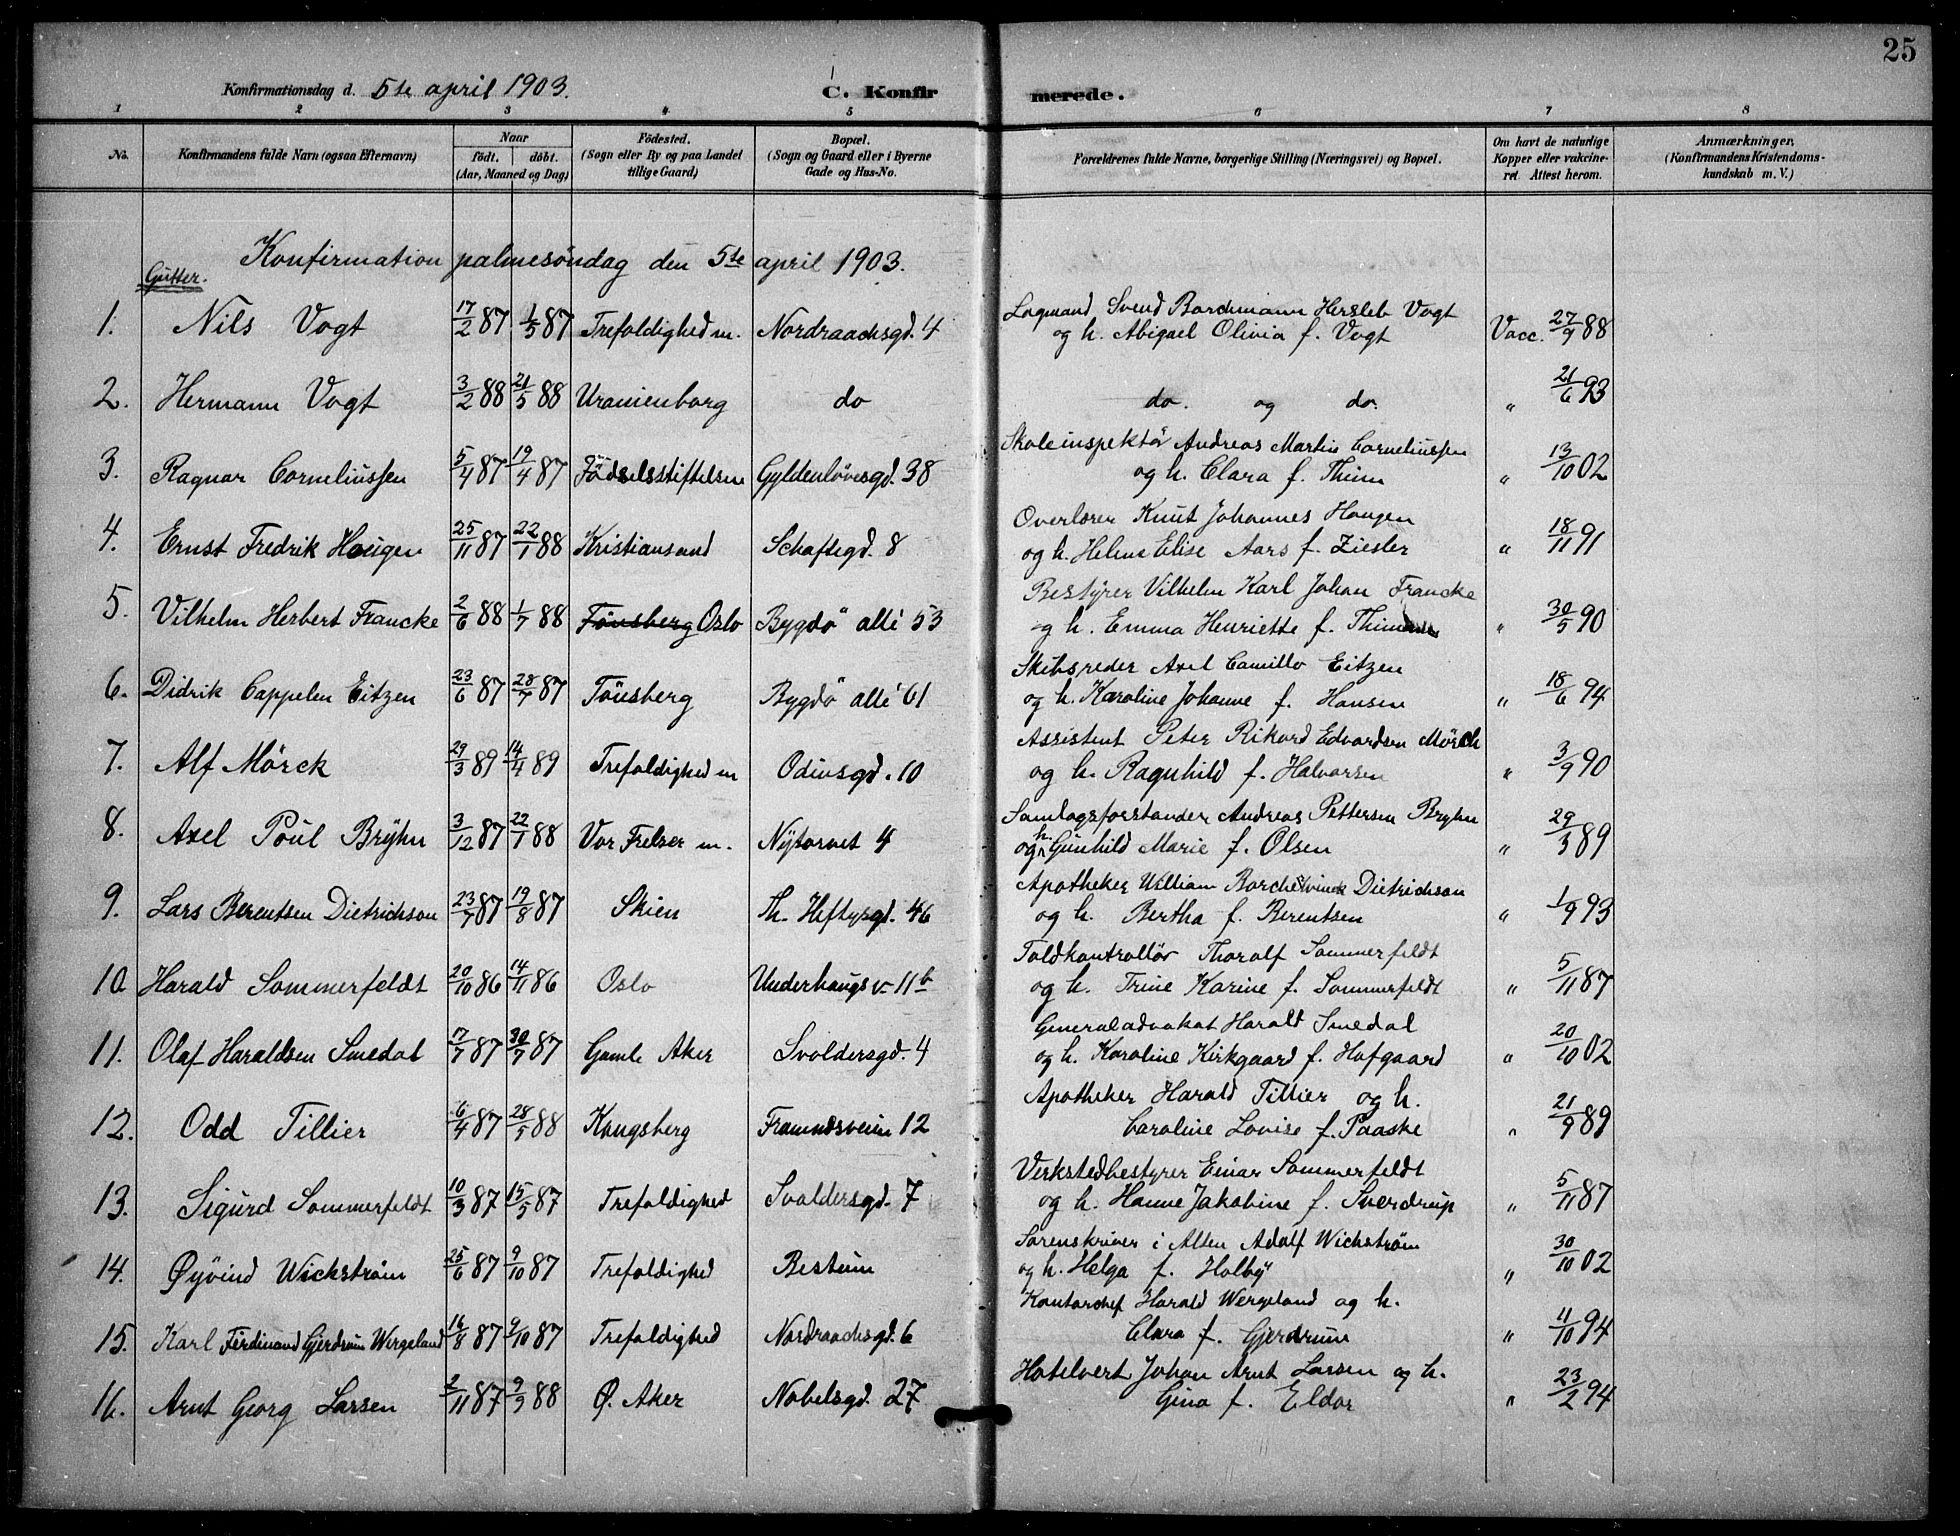 25
Konfirmationsdag d. 5te april 1903. C. Konfirmerede.
1 2 3 4 5 6 7 8
No. Konfirmandens fulde Navn (ogsaa Efternavn) Naar født. døbt. (Aar, Maaned og Dag) Fødested. (Sogn eller By og paa Landet tillige Gaard) Bopæl. (Sogn og Gaard eller i Byerne Gade og Hus-No. Forældrenes fulde Navne, borgerlige Stilling (Næringsvei) og Bopæl. Om havt de naturlige Kopper eller vakcineret. Attest herom. Anmærkninger. (Konfirmandens Kristendomskundskab m. V.)
Konfirmation palmesöndag den 5te april 1903.
Gutter.
1. Nils Vogt 17/2 87 1/5 87 Trefoldighed m. Nordraachsgd. 4 Lagmand Svend Borchmann Hersleb Vogt
og h. Abigael Olivia f. Vogt Vacc. 27/9 88
2. Hermann Vogt 3/2 88 21/5 88 Uranienborg do do. og do. " 21/6 93
3. Ragnar Corneliussen 5/4 87 19/4 87 Födselsstiftelsen Gyldenløvesgd. 38 Skoleinspektör Andreas Martin Corneliussen
og h. Clara f. Thim " 13/10 02
4. Ernst Fredrik Hougen 25/11 87 22/1 88 Kristiansand Schaftsgd. 8 Overlærer Knut Johannes Hougen
og h. Helene Elise Aars f. Ziesler " 18/11 91
5. Vilhelm Herbert Francke 2/6 88 1/7 88 Tönsberg Oslo Bygdö allé 53 Bestyrer Vilhelm Karl Johan Francke
og h. Emma Henriette f. " 30/5 90
6. Didrik Cappelen Eitzen 23/6 87 28/7 87 Tönsberg Bygdö allé 61 Skibsreder Axel Camillo Eitzen
og h. Karoline Johanne f. Hansen " 18/6 94
7. Alf Mörck 29/3 89 14/4 89 Trefoldighed m Odinsgd. 10 Assistent Peter Rikard Edvardsen Mörch
og h. Ragnhild f. Halvorsen " 3/9 90
8. Axel Poul Bryhn 3/12 87 22/1 88 Vor Frelser m. Nytorvet 4 Samlagsforstander Andreas Pettersen Bryhn
og h. Gunhild Marie f. Olsen " 29/3 89
9. Lars Berentsen Dietrichson 23/7 87 19/8 87 Skien Th. Heftysgd. 46 Apotheker William Dietrichson
og h. Bertha f. Berentsen " 1/9 93
10. Harald Sommerfeldt 20/10 86 14/11 86 Oslo Underhaugsv. 11b Toldkontrollör Thoralf Sommerfeldt
og h. Trine Karine f. Sommerfeldt " 5/11 87
11. Olaf Haraldsen Smedal 17/7 87 30/7 87 Gamle Aker Svoldersgd. 4 Generaladvokat Harald Smedal
og h. Karoline Kirkgaard f. Hofgaard " 20/10 02
12. Odd Tillier 6/4 87 28/5 88 Kongsberg 12 Apotheker Harald Tillier og h.
Caroline Lovise f. Paaske " 21/9 89
13. Sigurd Sommerfeldt 10/3 87 15/5 87 Trefoldighed Svoldersgd. 7 Verkstedbestyrer Einar Sommerfeldt
og h. Hanne Jakobine f. Sverdrup " 5/11 87
14. Øyvind Wickstrøm 25/6 87 9/10 87 Trefoldighed Bestum Sorenskriver i Alten Adolf Wichstrøm
og h. Helga f. Holby " 30/10 02
15. Karl Ferdinand Gjerdrum Wergeland 16/8 87 9/10 87 Trefoldighed Nordraachsgd. 6 Kontorchef Harald Wergeland og h.
Clara f. Gjerdrum " 11/10 94
16. Arnt Georg Larsen 2/11 87 9/9 88 Ø. Aker Nobelsgd. 27 Hotelvert Johan Arnt Larsen og h.
Gina f. Eldor " 23/2 94